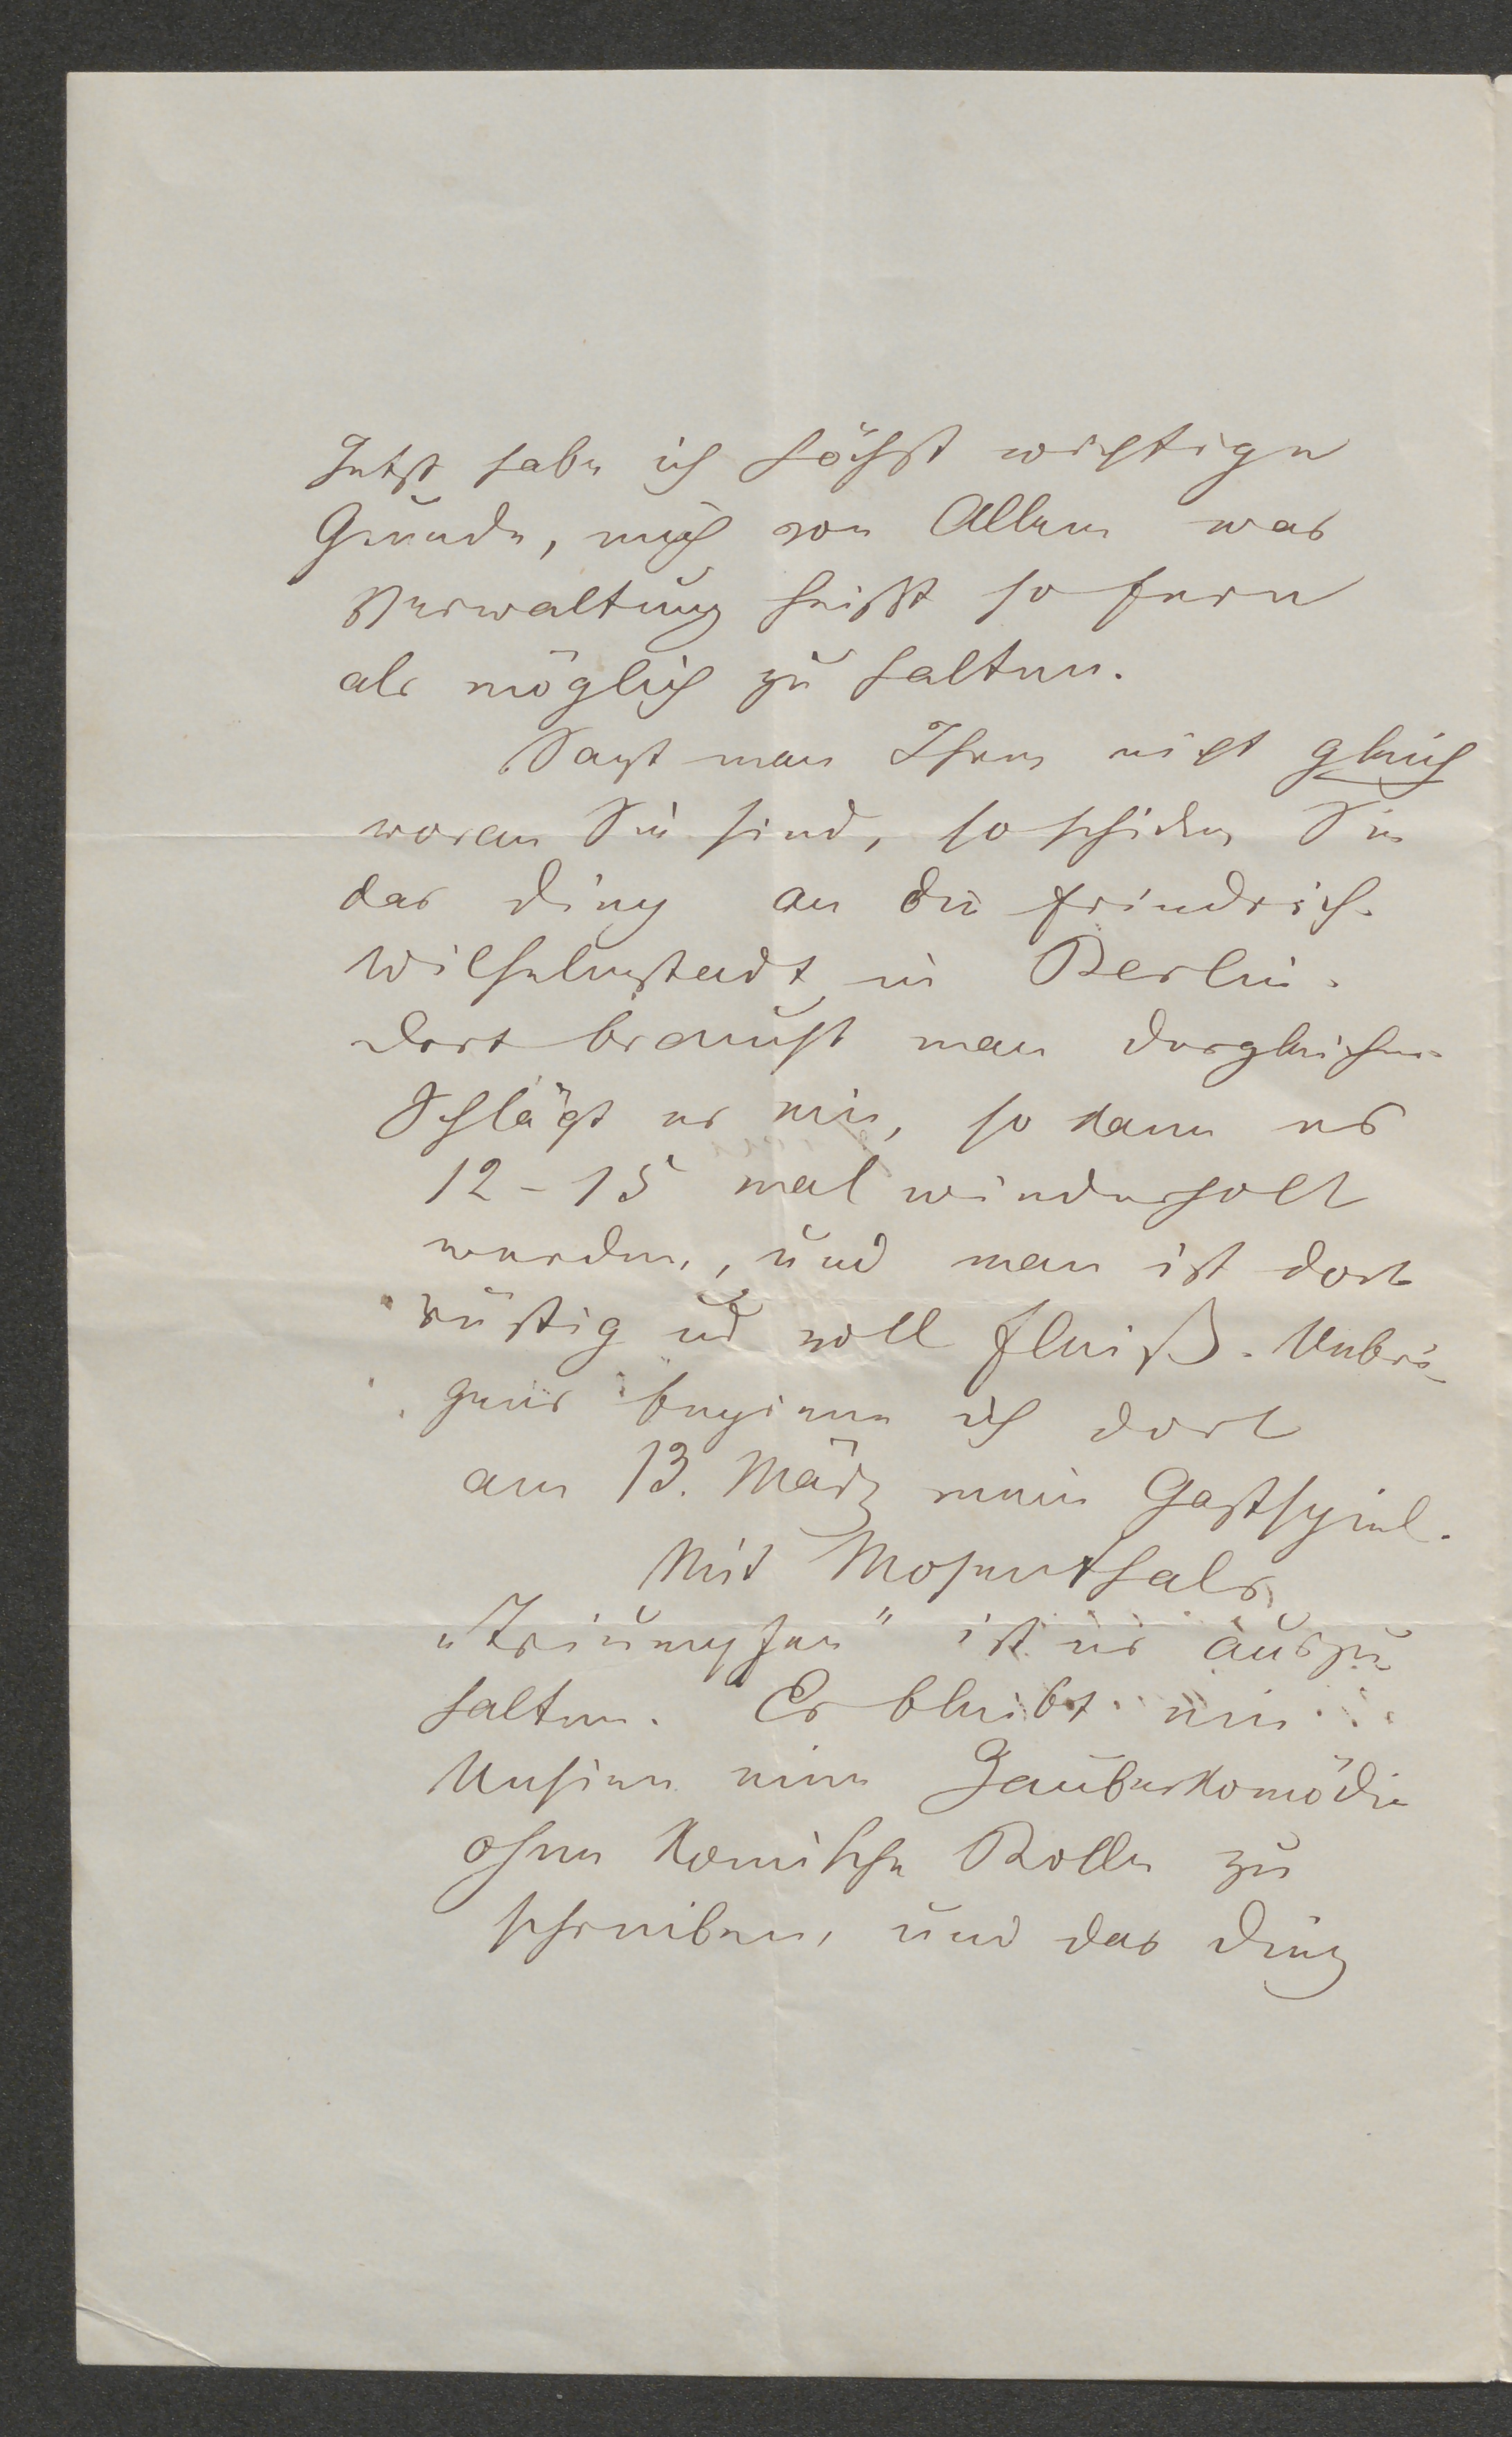 Jetzt habe ich höchst wichtige
Gründe, mich von Allem was
Verwaltung heißt so fern
als möglich zu halten.
Sagt man Ihnen nicht gleich
woran Sie sind, so schicken Sie
das Ding an die Friedrich-
Wilhelmstadt in Berlin.
Dort braucht man dergleichen.
Schlägt es ein, so kann es
12-15 mal wiederholt
werden, und man ist dort
rüstig ud voll Fleiß. Uebri-
gens beginne ich dort
am 13. März mein Gastspiel.
Mit Mosenthals
„Triumpfen" ist es auszu-
halten. Es bleibt ein
Unsinn eine Zauberkomödie
ohne komische Rolle zu
schreiben, und das Ding